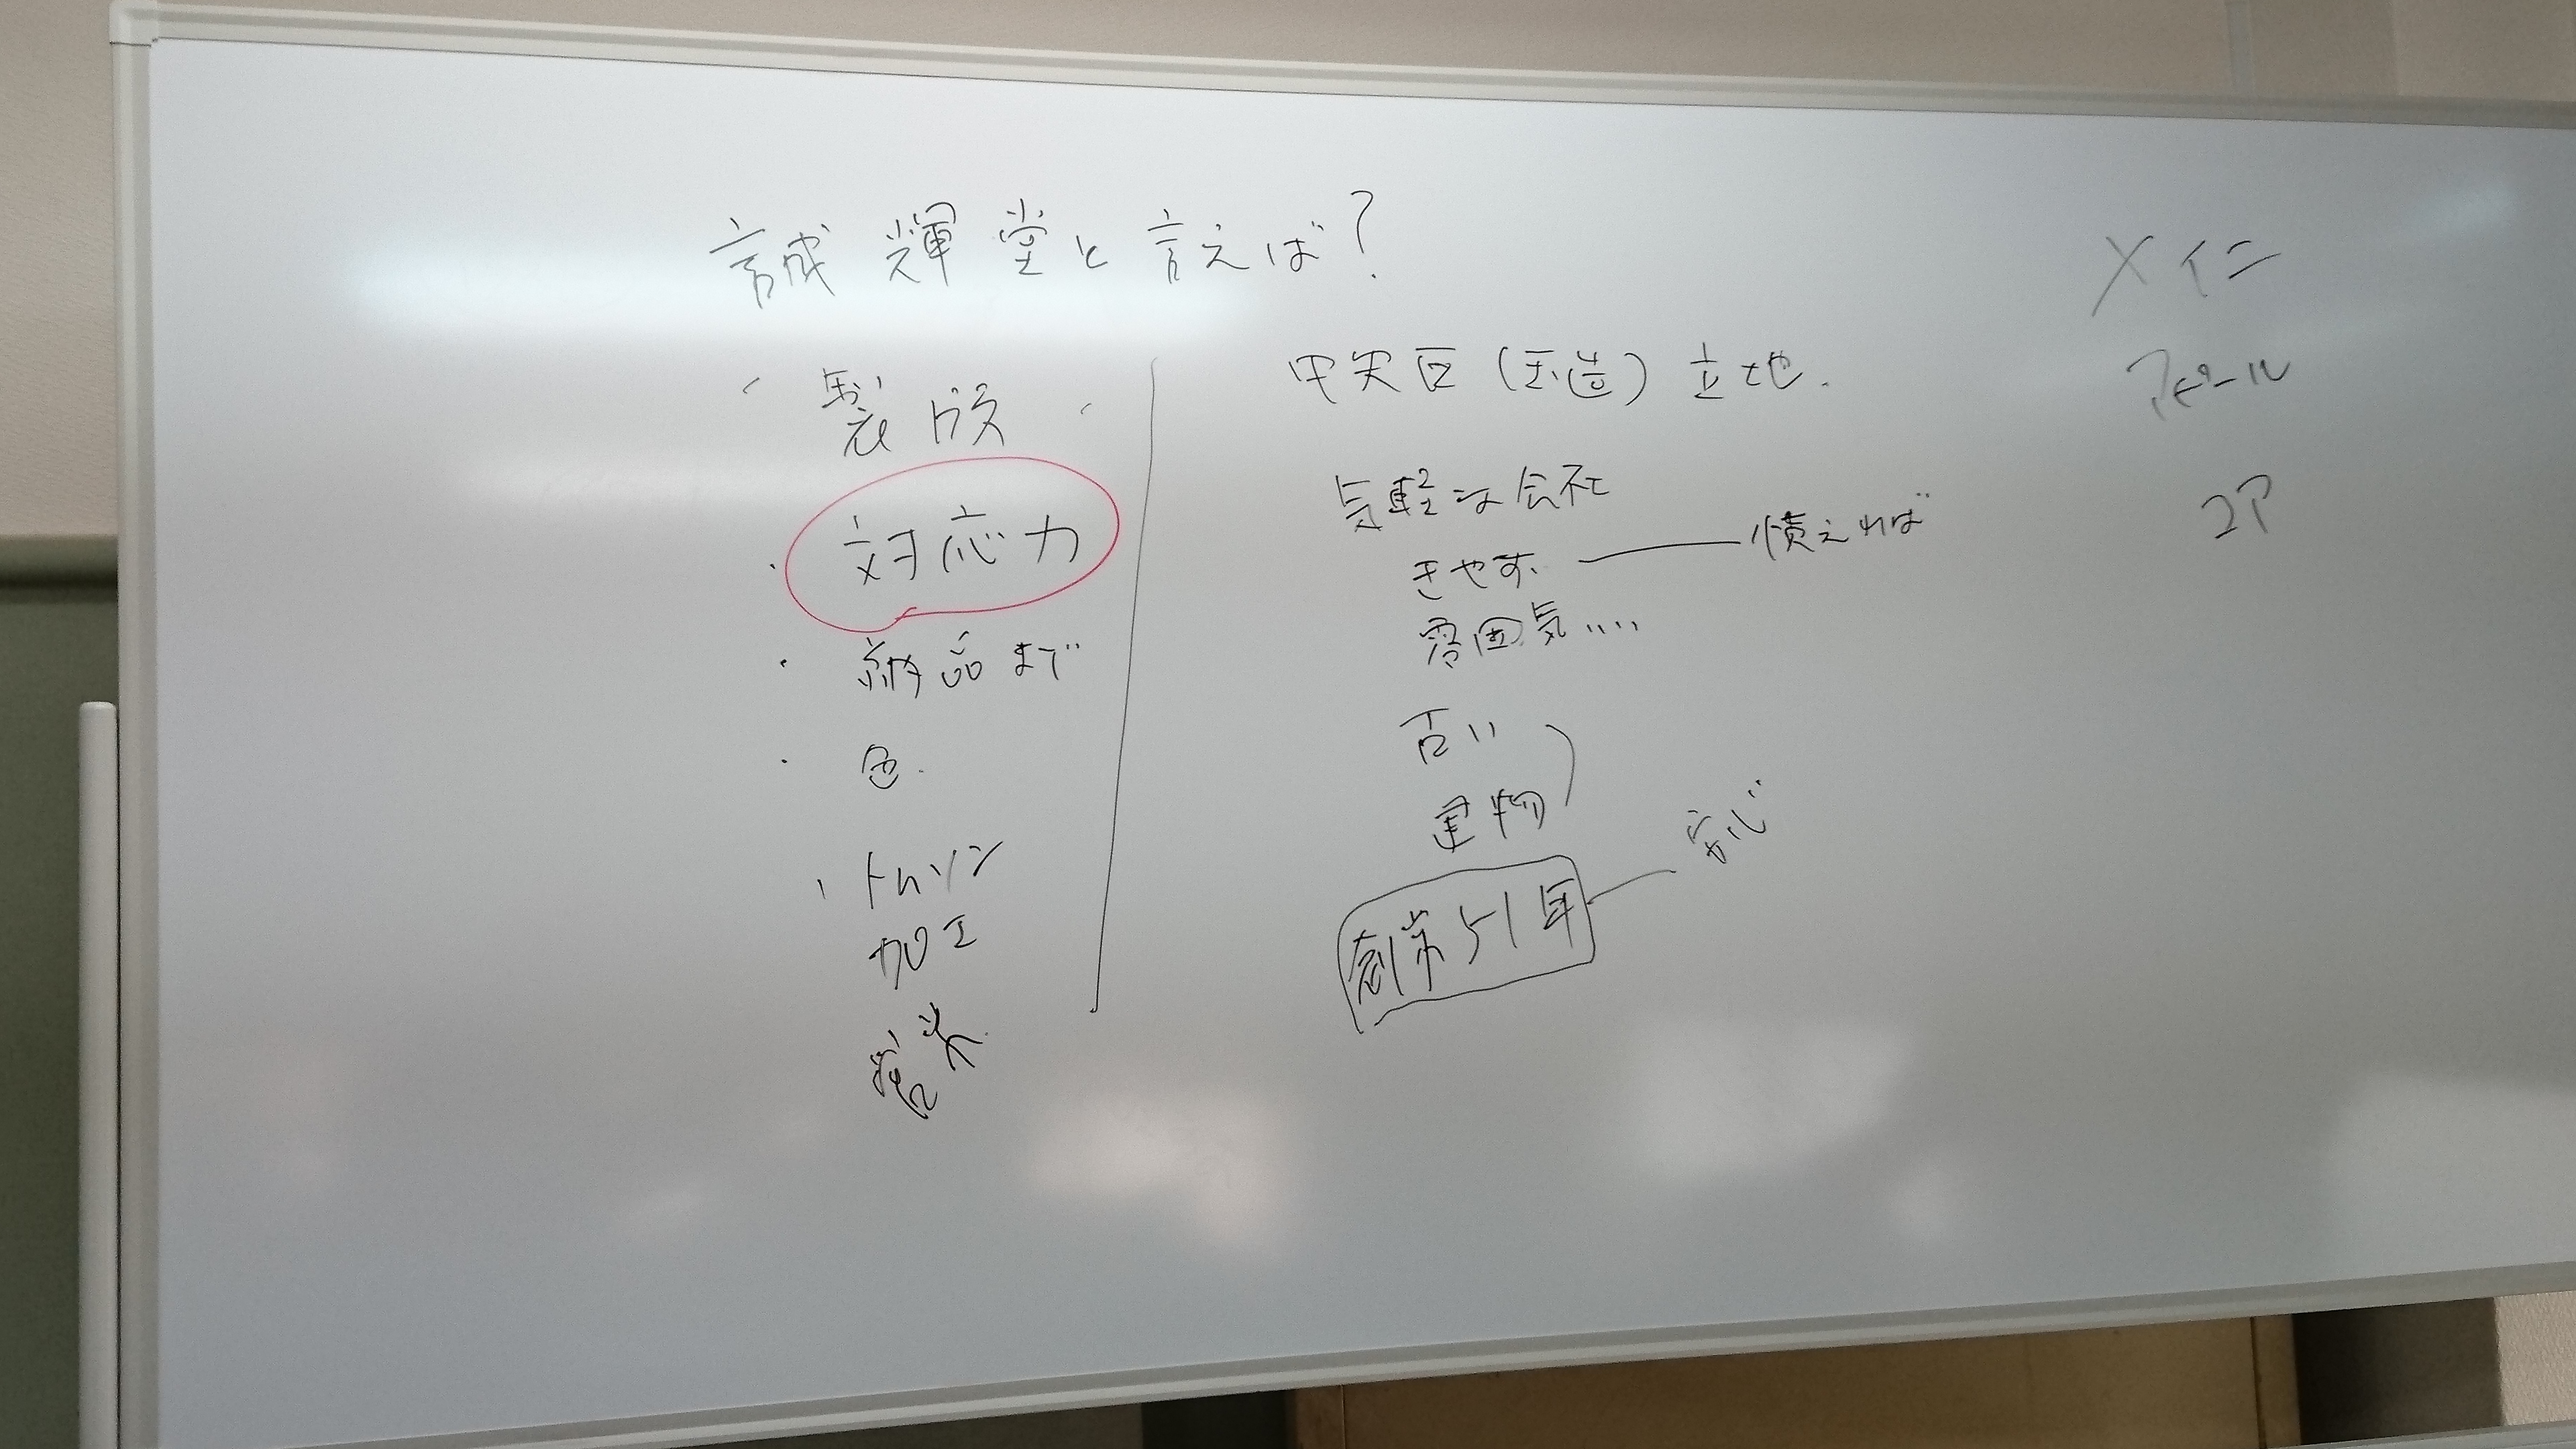 誠輝堂と言えば?
・製版
・対応力
・納品まで
・色.
・トムソン
加工
営業.
中央区(玉造)立地.
気軽な会社
きやすい 慣えれば
雰囲気‥‥
古い
建物
創業51年
安心
メイン
アピール
コア